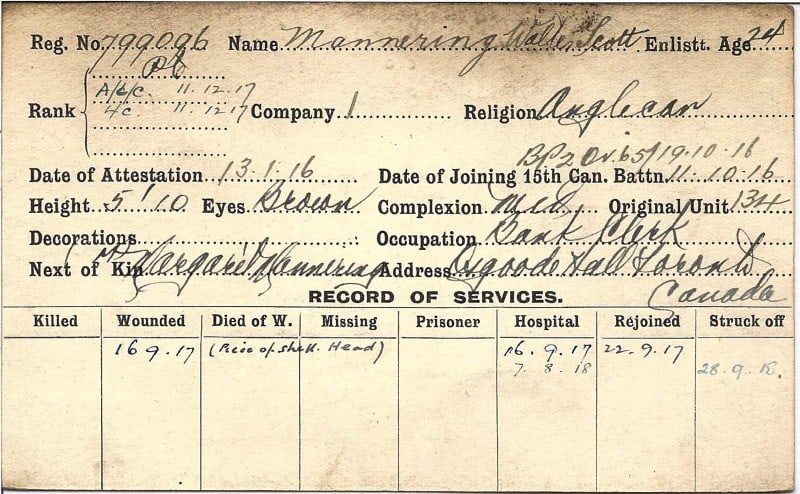 Reg. No. 799096 Name Mannering Walter Scott Enlistt. Age 24
Pte
A/c/c. 11.12.17
Rank L/c. 11.12.17 Company 1 Religion Anglican
19.10.16
Date of Attestation 13.1.16 Date of Joining 15th Can. Battn. 11.10.16
Height 5' 10 Eyes Brown Complexion Med. Original Unit 134
Decorations Occupation Bank Clerk
Next of Kin Margaret Mannering Address Osgoode Hall Toronto
Canada
RECORD OF SERVICES.
Killed Wounded Died of W. Missing Prisoner Hospital Rejoined Struck off
16 9.17 (Piece of shell. Head) 16.9.17 22.9.17
7.8.18 28.9.18.